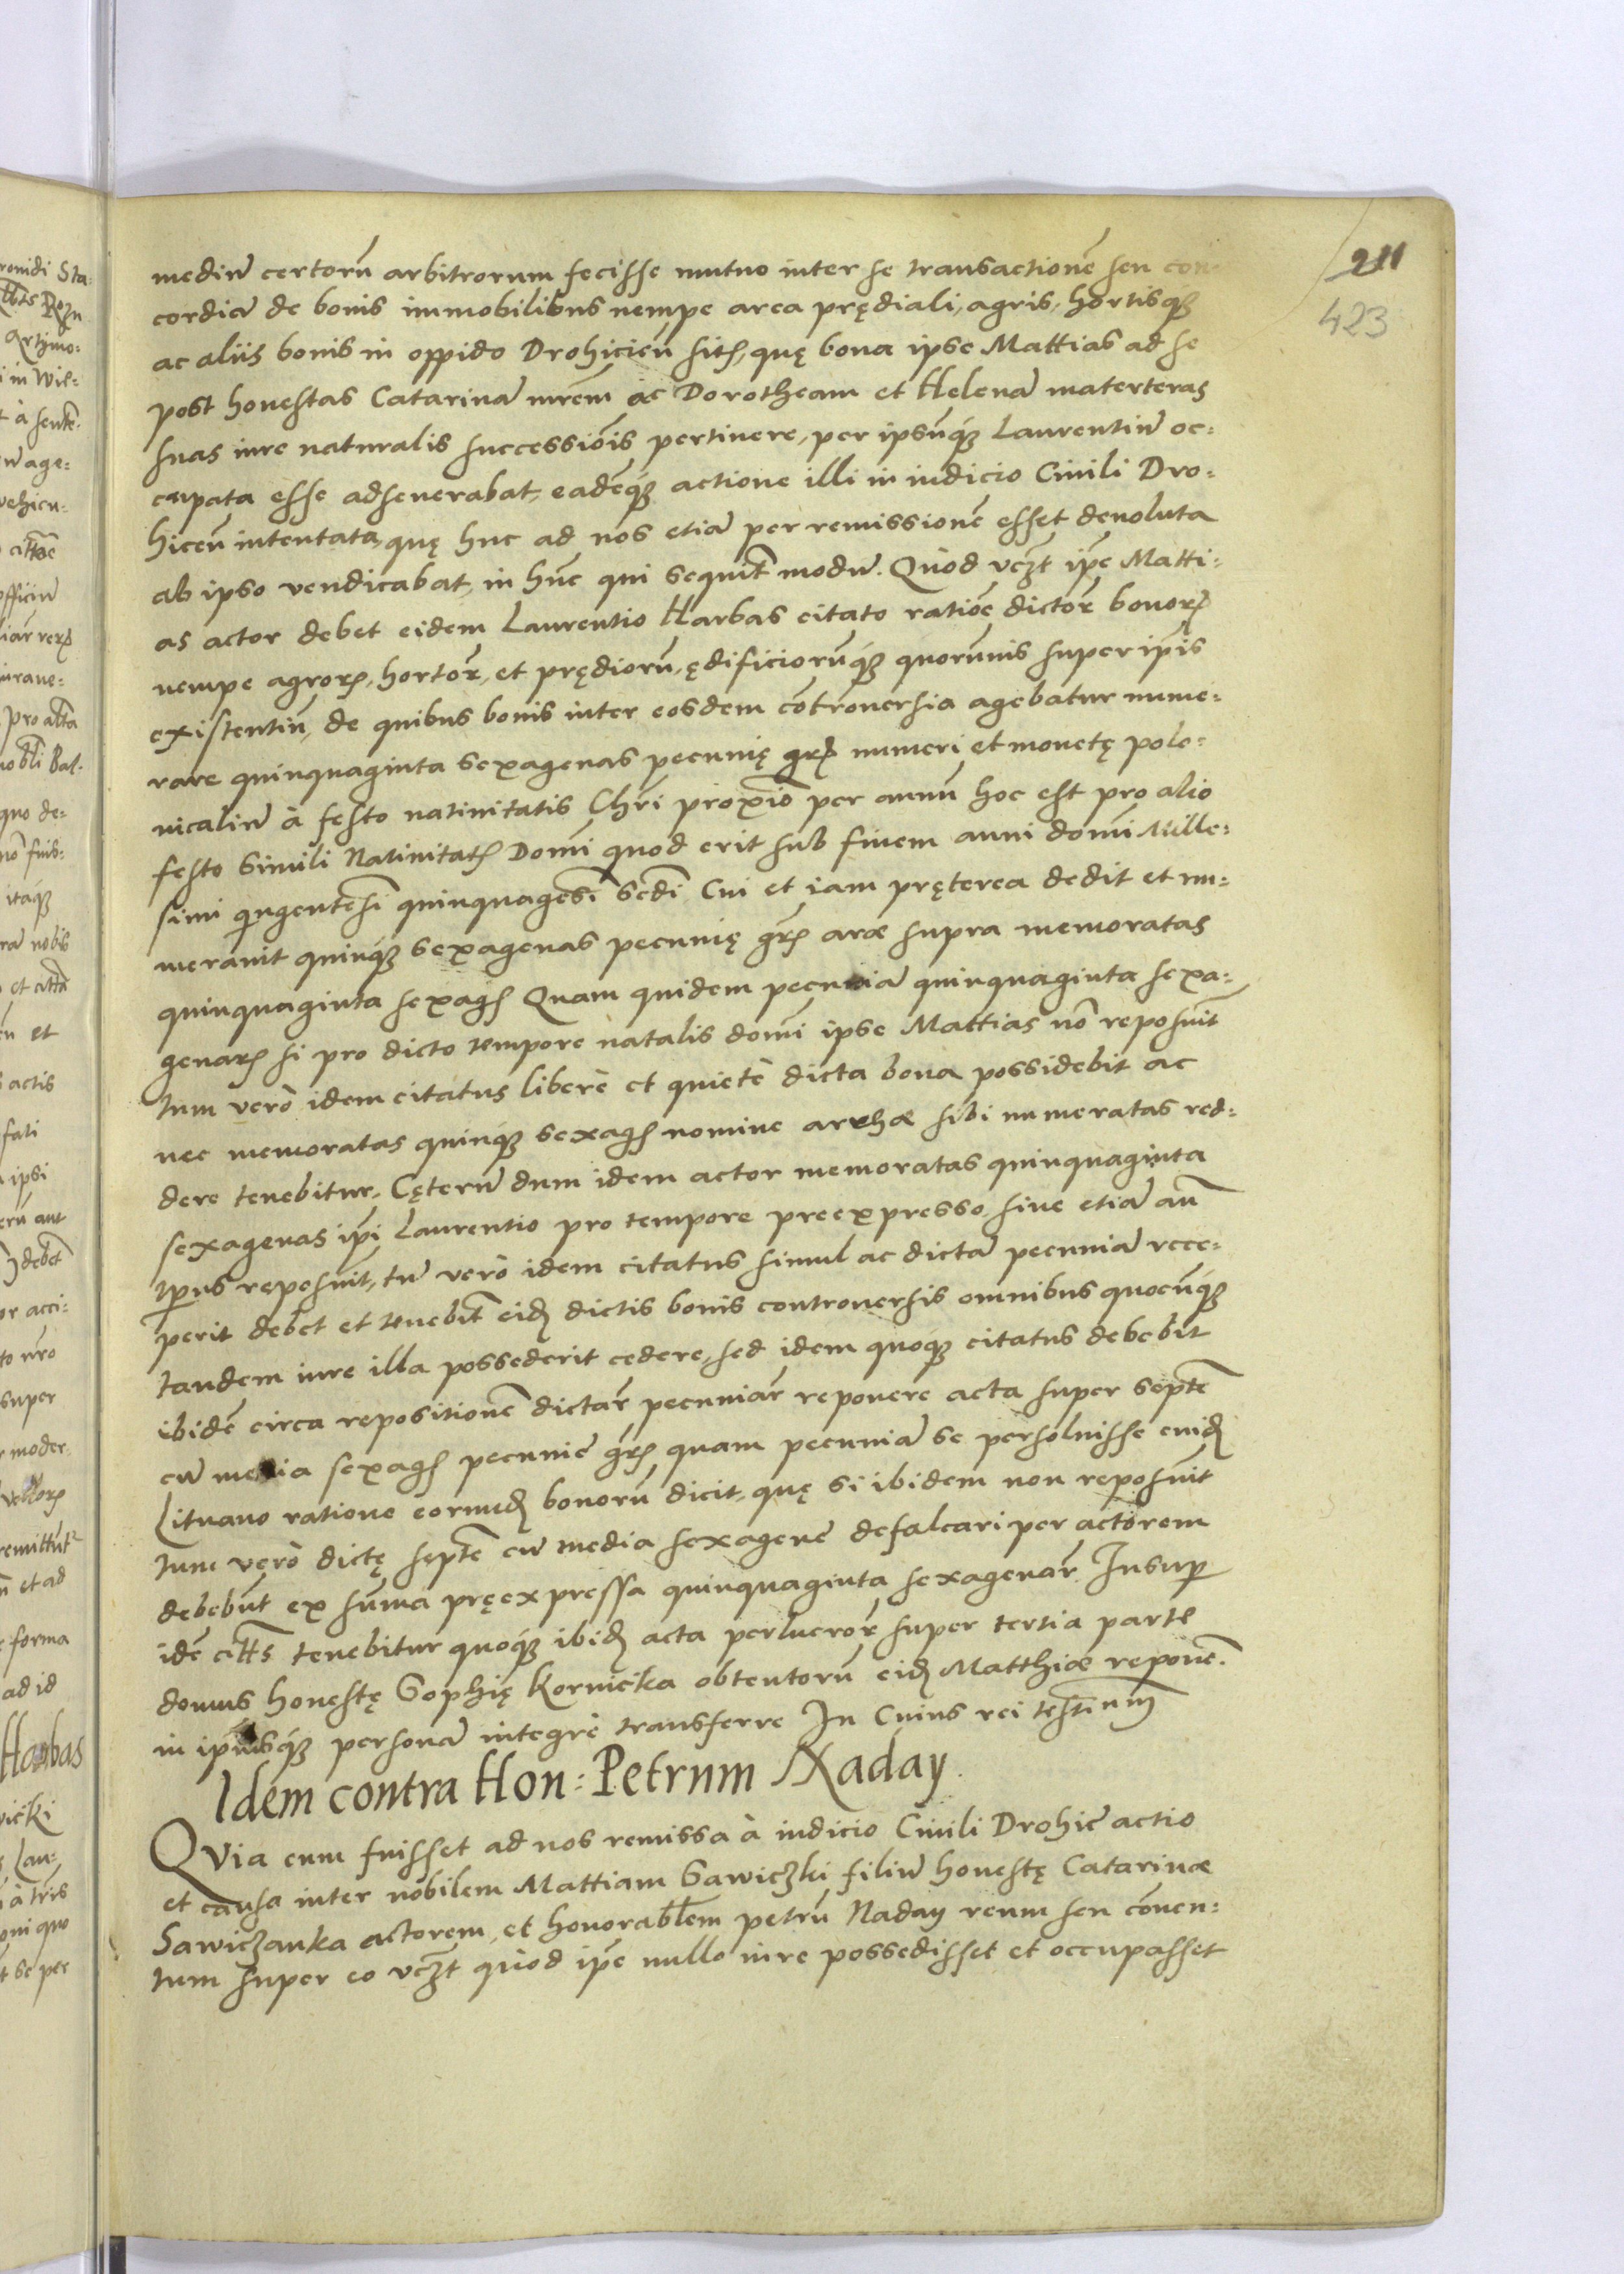 211
423
mediū certorū arbitrorum fecisse mutuo inter se transactionē seu con-
cordiā de bonis immobilibus nempe area prędiali, agris, hortisq́ꝫ
ac aliis bonis in oppido Drohicień sitꝭ, quę bona ipse Mattias ad se
post honestas Catarinā mrēm ac Dorotheam et Helenā materteras
suas iure naturalis successiōis pertinere, per ipsūq́ꝫ Laurentiū oc-
cupata esse adseuerabat, eadēq́ꝫ actione illi in iudicio Ciuili Dro-
hiceń intentata, quę huc ad nos etiā per remissionē esset deuoluta
ab ipso vendicabat, in hūc qui sequit̄ modū. Quòd vcꝫt ip̄e Matti-
as actor debet eidem Laurentio Harbas citato ratiōe dictor̄ bonorꝭ
nempe agrorꝭ, hortor̄, et prędiorū, ędificiorūq́ꝫ quorūuis super ip̄is
existentiū, de quibus bonis inter eosdem cōtrouersia agebatur nume-
rare quinquaginta sexagenas pecunię grꝭ numeri et monetę polo-
nicaliū à festo natiuitatis Chr̄i proxīo per annū hoc est pro alio
festo simili Natiuitatꝭ Domī quod erit sub finem anni domī Mille-
simi qūgentesī quinquagesī scdī Cui et iam pręterea dedit et nu-
merauit quinq́ꝫ sexagenas pecunię grꝭ aræ supra memoratas
quinquaginta sexagꝭ Quam quidem pecuniā quinquaginta sexa-
genarꝭ si pro dicto tempore natalis domī ipse Mattias nō reposuit̄
tum verò idem citatus liberè et quietè dicta bona possidebit ac
nec memoratas quinq́ꝫ sexagꝭ nomine arrhæ sibi numeratas red-
dere tenebitur. Cęterū dum idem actor memoratas quinquaginta
sexagenas ip̄i Laurentio pro tempore preexpresso siue etiā an̄
tp̄us reposuit, tū verò idem citatus simul ac dictā pecuniā rece-
perit debet et tenebit̄ eidꝭ dictis bonis controuersis omnibus quocūq́ꝫ
tandem iure illa possederit cedere, sed idem quoqꝫ citatus debebit
ibidē circa repositionē dictar̄ pecuniar̄ reponere acta super septē
cū media sexagꝭ pecunie grꝭ quam pecuniā se persoluisse cuidꝭ
Lituano ratione eorundꝭ bonorū dicit, quę si ibidem non reposuit
tum verò dictę septē cū media sexagene defalcari per actorem
debebūt ex sūma pręexpressa quinquaginta sexagenar̄ Insup̄
idē citt̄s tenebitur quoq́ꝫ ibidꝭ acta perlucror̄ super tertia parte
domus honestę Sophię Kornicka obtentorū eidꝭ Matthiæ reponē.
in ipsiusq́ꝫ personā integrè transferre In Cuius rei testīum̄
Idem contra Hon: Petrum Naday.
QVia cum fuisset ad nos remissa à iudicio Ciuili Drohic̄ actio
et causa inter nobilem Mattiam Sawiczki filiū honestę Catarinæ
Sawiczanka actorem, et honorabl̄em petrū Naday reum seu cōuen-
tum super eo vcꝫt quòd ip̄e nullo iure possedisset et occupasset